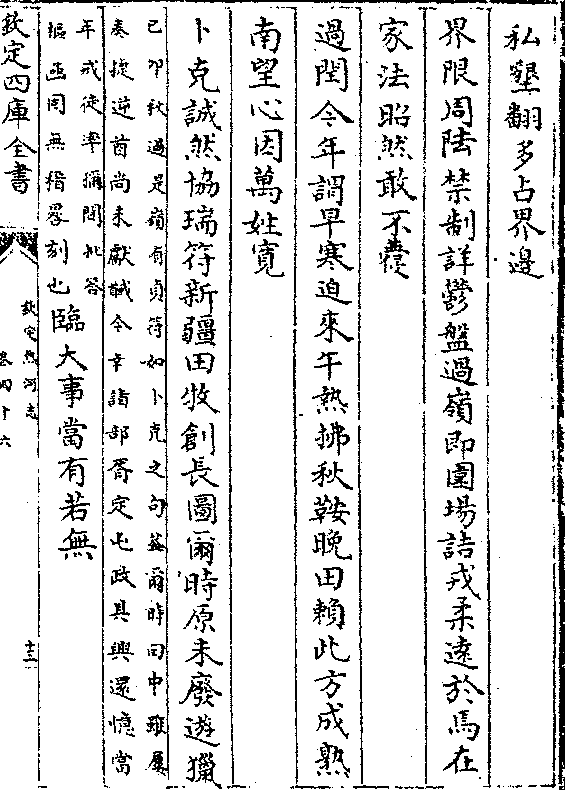 私墾翻多占界邊
界限周陡禁制詳鬱盤過嶺即圍場詰戎柔逺於焉在
家法昭然敢不䖍
過閏今年謂早寒迫來午熱拂秋鞍晚田賴此方成熟
南望心因萬姓寛
卜克誠然協瑞符新疆田牧創長圖爾時原未廢遊獵
己卯秋過是嶺有貞符如卜克之句葢爾時囘中雖屢
奏捷逆酋尚未獻馘今幸諸部胥定屯政具興還憶當
年戎徒率獮閒批答
樞函罔無稽晷刻也臨大事當有若無
欽定四庫全書
欽定熱河志
卷四十六
十三